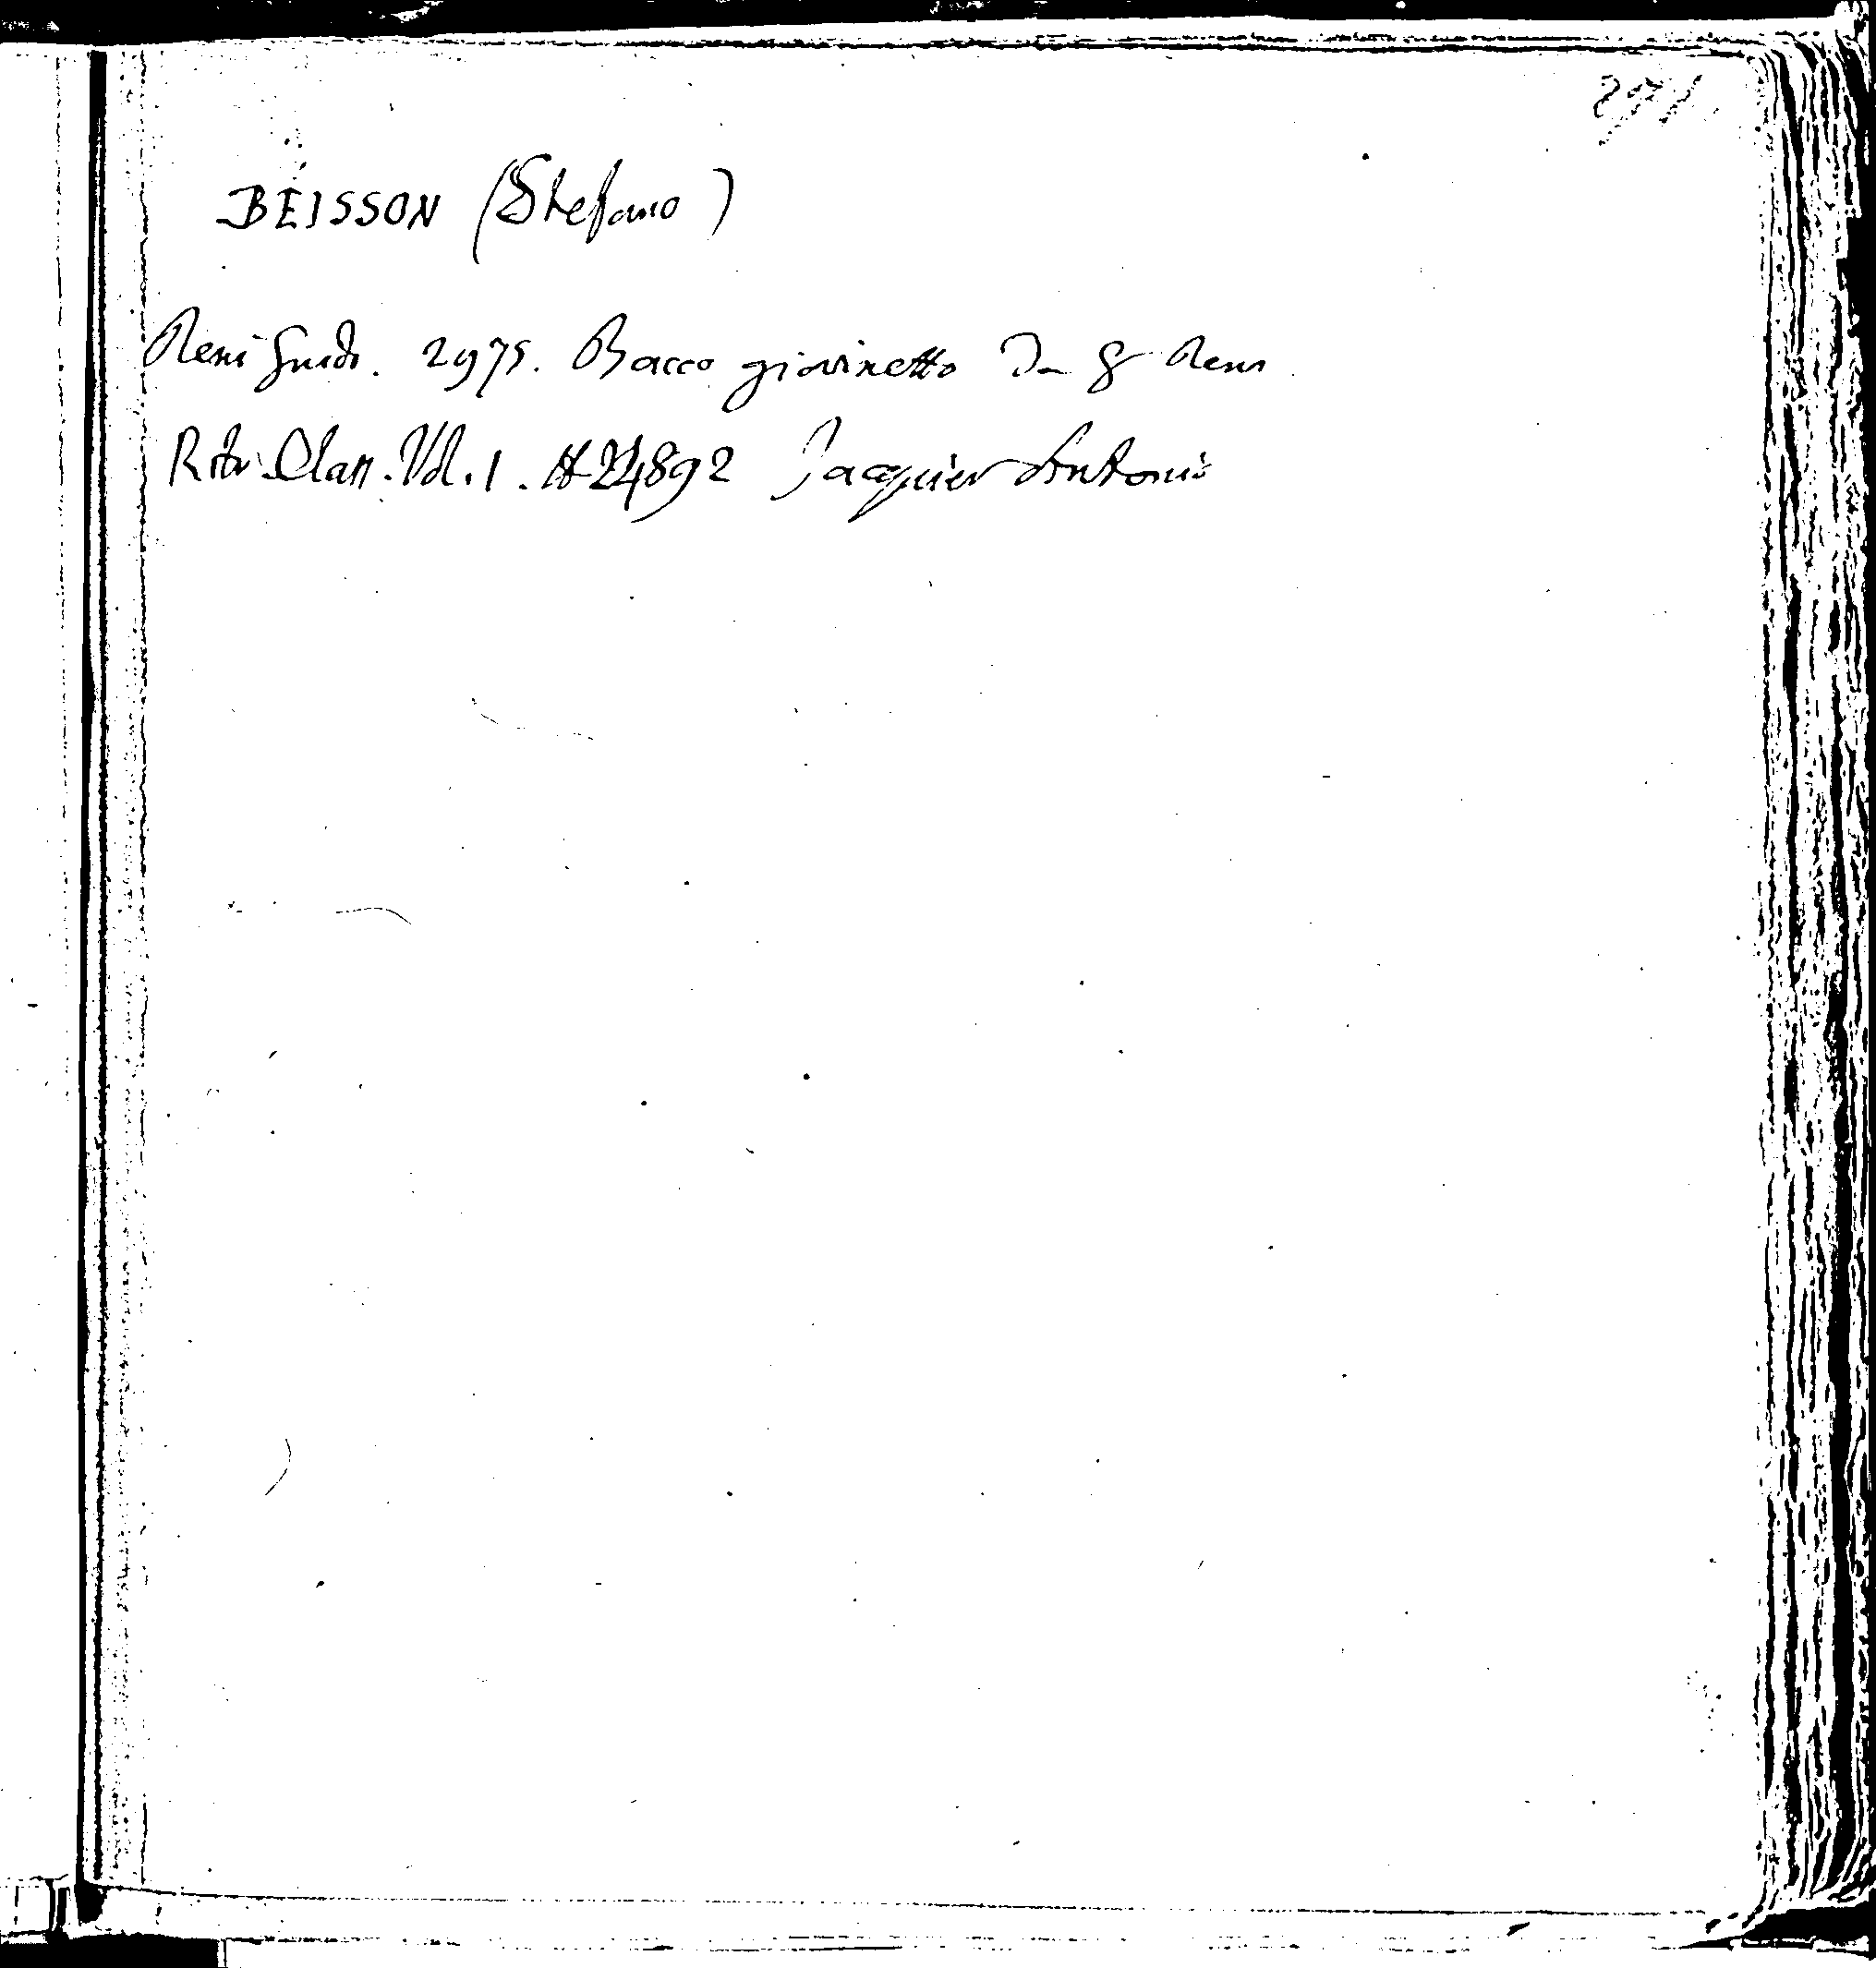 271
BEISSON (Stefano)
Reni Guido. 2975. Bacco giovinetto Da G Reni
Ritr. Class. Vol. 1. # 24892 Jacquier Antonio